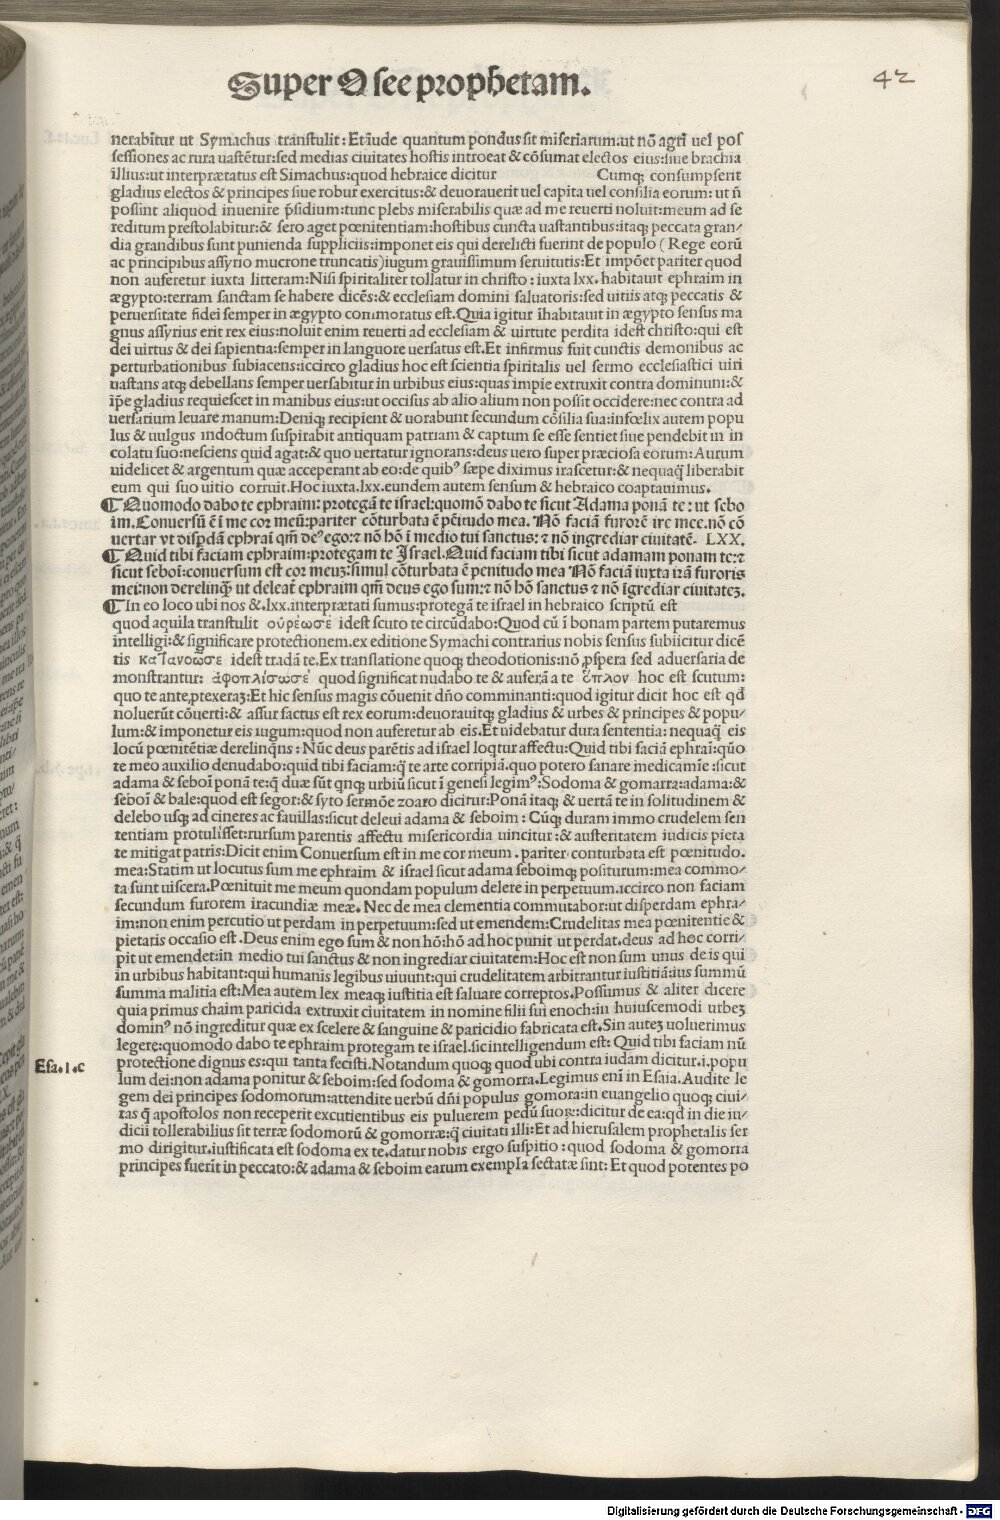 Super Osee prophetam.
42
nerabitur ut Symachus transtulit: Etāude quantum pondus sit miseriarum:ut nō agri uel pos
sessiones ac rura uastētur:sed medias ciuitates hostis introeat & cōsumat electos eius:siue brachia
illius:ut interprætatus est Simachus:quod hebraice dicitur Cumq; consumpserit
gladius electos & principes siue robur exercitus:& deuorauerit uel capita uel consilia eorum: ut ñ
possint aliquod inuenire p̄sidium:tunc plebs miserabilis quæ ad me reuerti noluit:meum ad se
reditum prestolabitur:& sero aget pœnitentiam:hostibus cuncta uastantibus:itaq; peccata gran/
dia grandibus sunt punienda suppliciis:imponet eis qui derelicti fuerint de populo ( Rege eorū
ac principibus assyrio mucrone truncatis)iugum grauissimum seruitutis: Et impōet pariter quod
non auferetur iuxta litteram: Nisi spiritaliter tollatur in christo : iuxta lxx. habitauit ephraim in
ægypto:terram sanctam se habere dicēs:& ecclesiam domini saluatoris:sed uitiis atq; peccatis &
peruersitate fidei semper in ægypto commoratus est.Quia igitur īhabitauit in ægypto sensus ma
gnus assyrius erit rex eius:noluit enim reuerti ad ecclesiam & uirtute perdita idest christo:qui est
dei uirtus & dei sapientia:semper in languore uersatus est.Et infirmus fuit cunctis demonibus ac
perturbationibus subiacens:iccirco gladius hoc est scientia spiritalis uel sermo ecclesiastici uiri
uastans atq; debellans semper uersabitur in urbibus eius:quas impie extruxit contra dominum:&
ip̄e gladius requiescet in manibus eius:ut occisus ab alio alium non possit occidere:nec contra ad
uersarium leuare manum:Deniq; recipient & uorabunt secundum cōsilia sua:infœlix autem popu
lus & uulgus indoctum suspirabit antiquam patriam & captum se esse sentiet siue pendebit in in
colatu suo:nesciens quid agat:& quo uertatur ignorans:deus uero super præciosa eorum:Aurum
uidelicet & argentum quæ acceperant ab eo:de quibꝰ sæpe diximus irascetur:& nequaq̄ liberabit
eum qui suo uitio corruit.Hoc iuxta.lxx.eundem autem sensum & hebraico coaptauimus.
¶ Quomodo dabo te ephraim: protegā te israel:quomō dabo te sicut Adama ponā te: ut sebo
im. Conuersū ē ī me cor meū:pariter cōturbata ē pēitudo mea. Nō faciā furorē ire mee.nō cō
uertar vt disp̄dā ephraī qm̄ deꝰ ego:⁊ nō hō ī medio tui sanctus:⁊ nō ingrediar ciuitatē. LXX.
¶ Quid tibi faciam ephraim:protegam te Israel.Quid faciam tibi sicut adamam ponam te:⁊
sicut seboī:conuersum est cor meuz:simul cōturbata ē penitudo mea Nō faciā iuxta irā furoris
mei:non derelinq̄ ut deleaī ephraim qm̄ deus ego sum:⁊ nō hō sanctus ⁊ nō īgrediar ciuitatez.
¶ In eo loco ubi nos &.lxx.interprætati sumus:protegā te israel in hebraico scriptū est
quod aquila transtulit οὑρέωσέ idest scuto te circūdabo:Quod cū ī bonam partem putaremus
intelligi:& significare protectionem.ex editione Symachi contrarius nobis sensus subiicitur dicē
tis idest tradā te.Ex translatione quoq; theodotionis:nō ꝓspera sed aduersaria de
monstrantur: ἀφοπλίσωσέ quod significat nudabo te & auferā a te ὅπλον hoc est scutum:
quo te ante,ptexeraz:Et hic sensus magis cōuenit dño comminanti:quod igitur dicit hoc est qd
noluerūt cōuerti:& assur factus est rex eorum:deuorauitq; gladius & urbes & principes & popu/
lum:& imponetur eis iugum:quod non auferetur ab eis.Et uidebatur dura sententia: nequaq̄ eis
locū pœnitētiæ derelinq̄ns : Nūc deus parētis ad israel loqtur affectu:Quid tibi faciā ephraī:qūo
te meo auxilio denudabo:quid tibi faciam:q̄ te arte corripiā.quo potero sanare medicamīe :sicut
adama & seboī ponā te:q̄ duæ sūt qnq; urbiū sicut ī genesi legimꝰ:Sodoma & gomarra:adama:&
seboī & bale:quod est segor:& syto sermōe zoaro dicitur:Ponā itaq; & uertā te in solitudinem &
delebo usq; ad cineres ac fauillas:sicut deleui adama & seboim : Cūq; duram immo crudelem sen
tentiam protulisset:rursum parentis affectu misericordia uincitur :& austeritatem iudicis pieta
te mitigat patris:Dicit enim Conuersum est in me cor meum . pariter conturbata est pœnitudo.
mea:Statim ut locutus sum me ephraim & israel sicut adama seboimq; positurum:mea commo/
ta sunt uiscera.Pœnituit me meum quondam populum delere in perpetuum.iccirco non faciam
secundum furorem iracundiæ meæ. Nec de mea clementia commutabor:ut disperdam ephra/
im:non enim percutio ut perdam in perpetuum:sed ut emendem:Crudelitas mea pœnitentie &
pietatis occasio est . Deus enim ego sum & non hō:hō ad hoc punit ut perdat.deus ad hoc corri/
pit ut emendet:in medio tui sanctus & non ingrediar ciuitatem:Hoc est non sum unus de is qui
in urbibus habitant:qui humanis legibus uiuunt:qui crudelitatem arbitrantur iustitiā:ius summū
summa malitia est:Mea autem lex meaq; iustitia est saluare correptos.Possumus & aliter dicere
quia primus chaim paricida extruxit ciuitatem in nomine filii sui enoch:in huiuscemodi urbez
dominꝰ nō ingreditur quæ ex scelere & sanguine & paricidio fabricata est.Sin autez uoluerimus
legere:quomodo dabo te ephraim protegam te israel.sic intelligendum est: Quid tibi faciam nū
Esa.1.c
protectione dignus es:qui tanta fecisti.Notandum quoq; quod ubi contra iudam dicitur.i.popu
lum dei:non adama ponitur & seboim:sed sodoma & gomorra.Legimus enī in Esaia.Audite le
gem dei principes sodomorum:attendite uerbū dñi populus gomora:in euangelio quoq; ciui/
tas q̄ apostolos non receperit excutientibus eis puluerem pedū suoꝝ:dicitur de ea:qd in die iu/
dicii tollerabilius sit terræ sodomorū & gomorræ:q̄ ciuitati illi:Et ad hierusalem prophetalis ser
mo dirigitur.iustificata est sodoma ex te.datur nobis ergo suspitio : quod sodoma & gomorra
principes fuerīt in peccato:& adama & seboim earum exempla sectatæ sint: Et quod potentes po
Digitalisierung gefördert durch die Deutsche Forschungsgemeinschaft - DFG